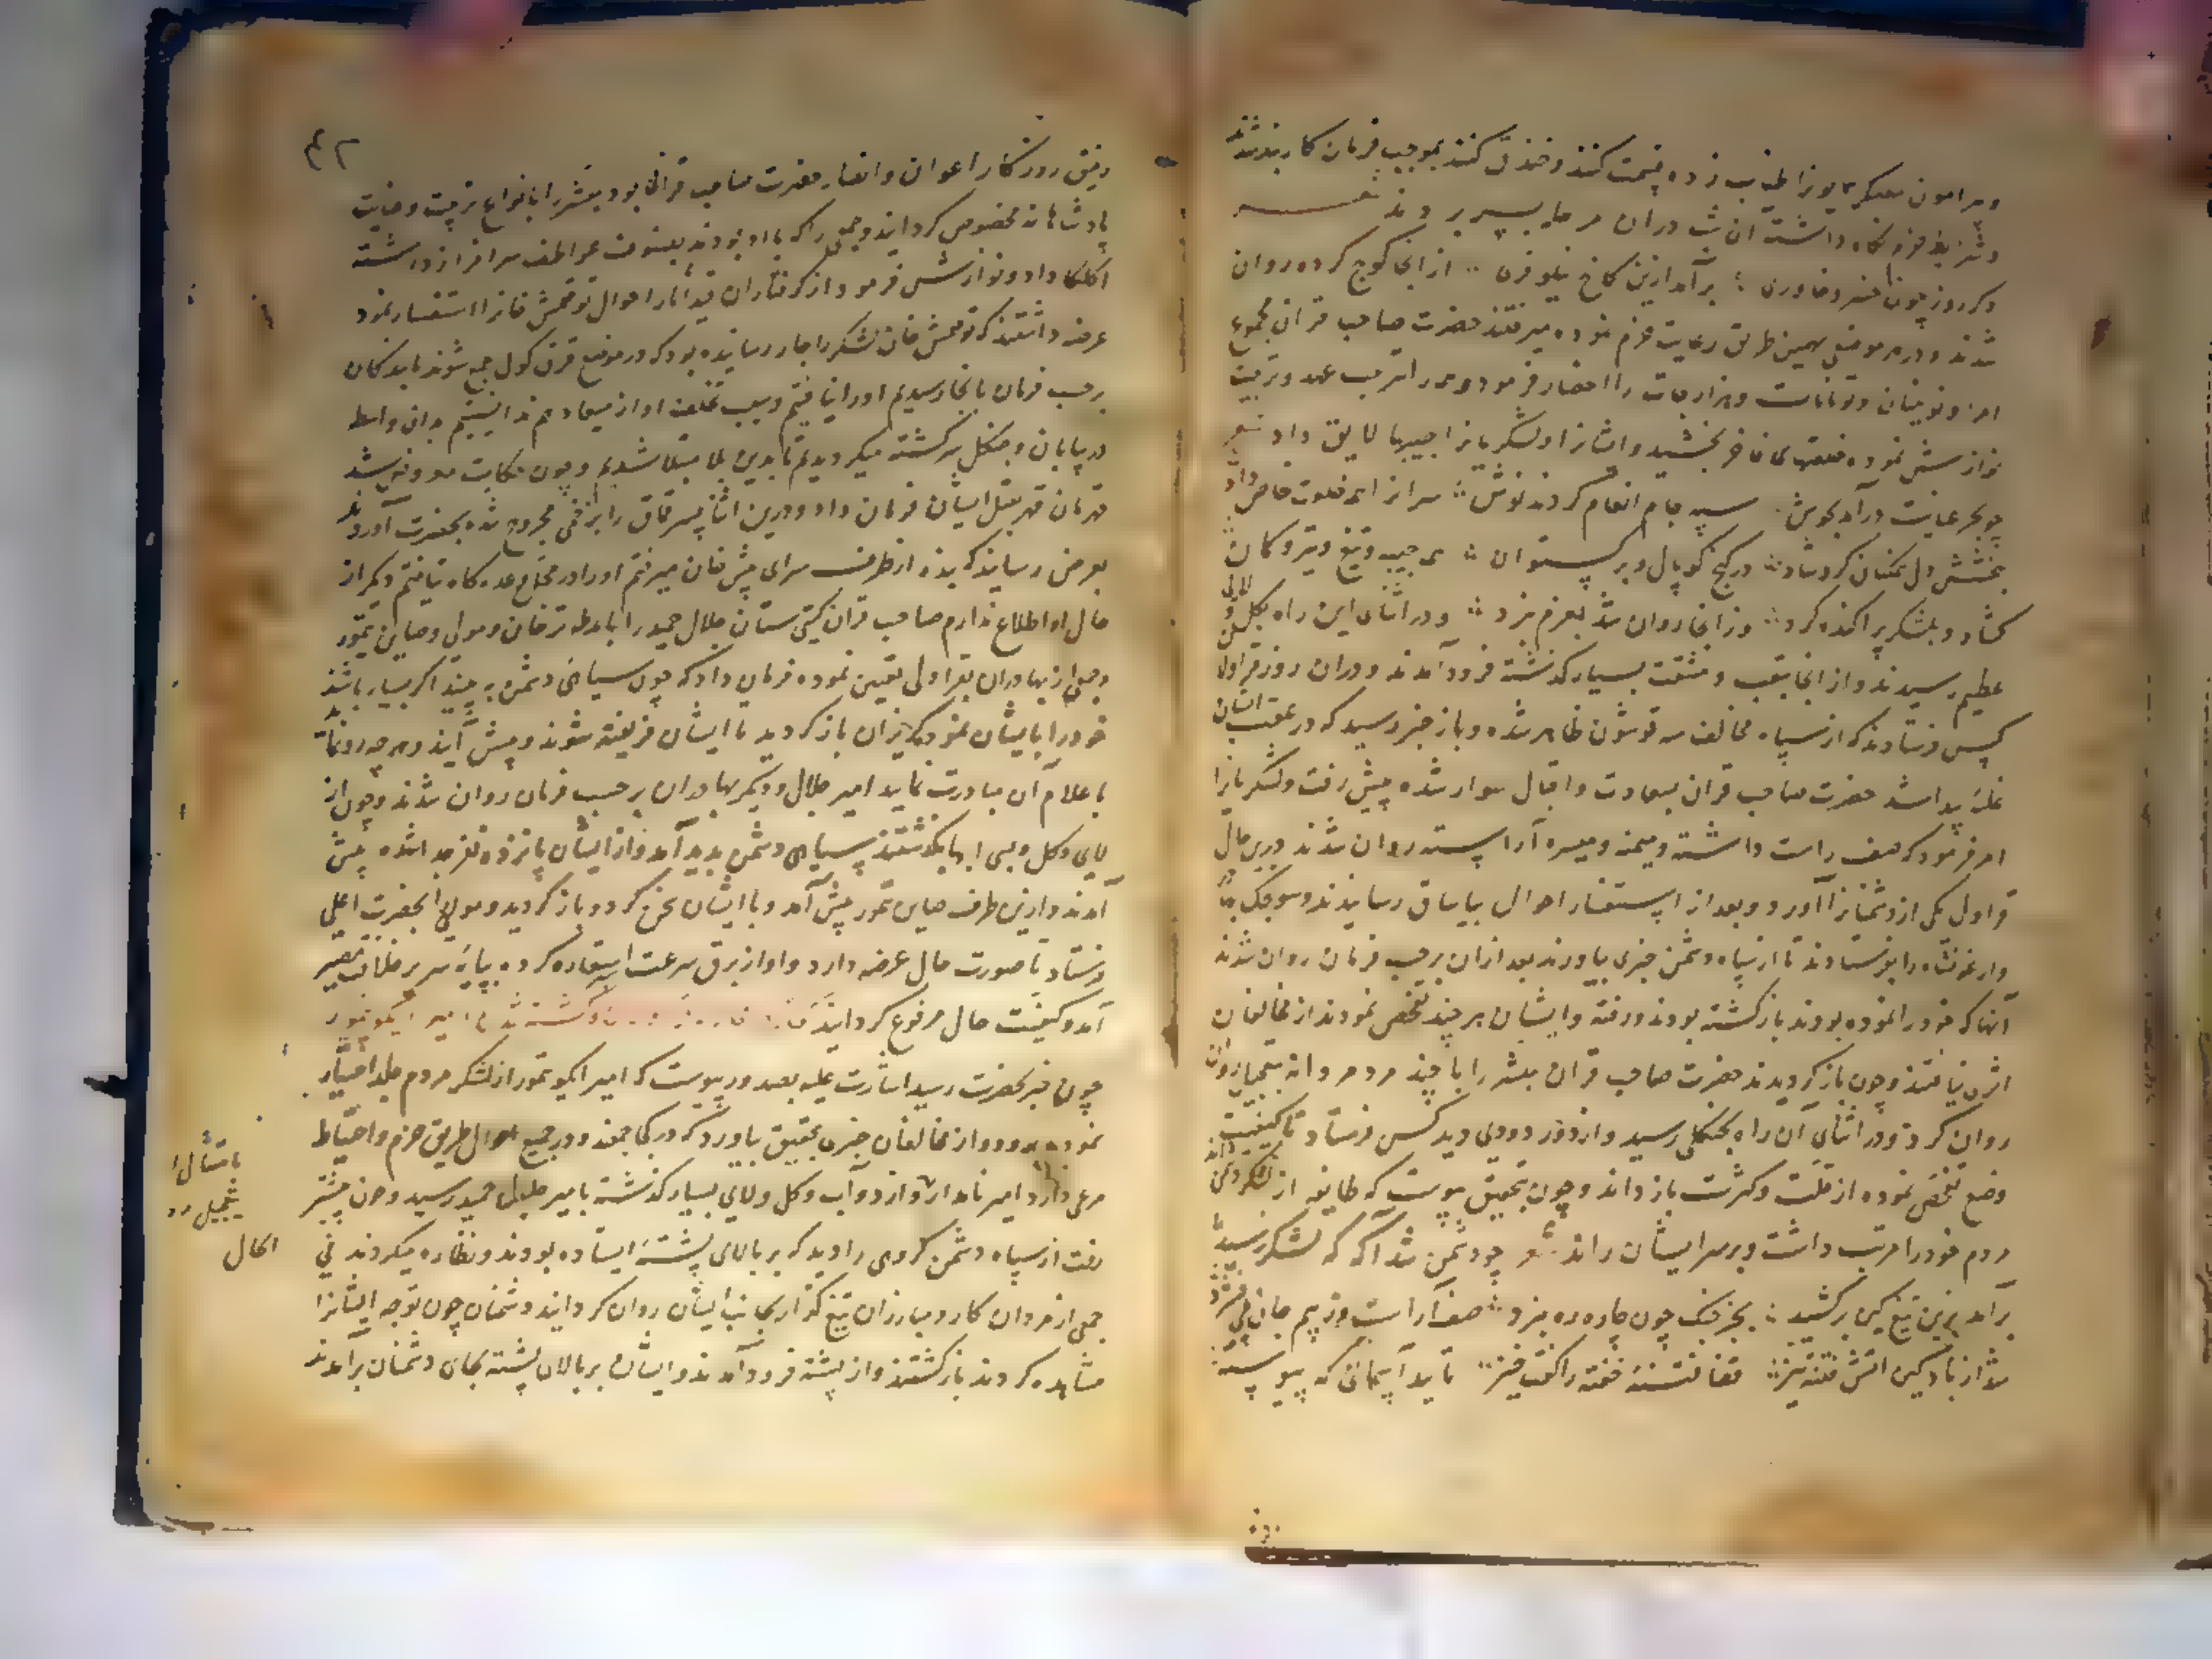 وپیرامون معسکر همایون را طناب زده قسمت کنند و خندق کنند بموجب فرمان کاربند شدند
وشرایط حزم نگاه داشته آن شب دران مرحله بسر بردند شعر
دگر روز چون خسرو خاوری برآمد ازین کاخ نیلوفری از انجا کوچ کرده روان
شدند ودر هر موضعی بهمین طریق رعایت حزم نموده میرفتند حضرت صاحب قران مجموع
امرا ونوینان وتومانات وهزارجات را احضار فرمود وهمه را تربیت
نوازش نموده خلعتهای فاخر بخشید وایشانرا ولشکریانرا جیبهای لایق داد شعر
چو بحر عنایت درآمد بجوش سپه جام انعام کردند نوش سرانرا همه خلعت خاص داد
ببخشش دل همکنان کرد شاد در گنج کوپال وبرگستوان همه جیبه وتیغ وتیر وکمان
گشاد وبلشکر پراکنده کرد وز انجا روان شد بعزم نبرد ودر اثنای این راه بگل ولای
عظیم رسیدند واز انجا بتعب ومشقت بسیار گذشته فرود آمدند ودران روز قراولان
کس فرستادند که از سپاه مخالف سه قوشون ظاهر شده وباز خبر رسید که در عقب ایشان
غلبه پیدا شد حضرت صاحب قران بسعادت واقبال سوار شده پیش رفت ولشکریانرا
امر فرمود که صف راست داشته ومیمنه ومیسره آراسته روان شدند درین حال
قراول یکی از دشمنانرا آورد وبعد از استفسار احوال بیاساق رسانیدند وسونجک بهادر
وارغونشاه را بفرستادند تا از سپاه دشمن خبری بیاورند بعد ازان برحسب فرمان روان شدند
آنها که خود را نموده بودند بازگشته بودند ورفته وایشان هرچند تفحص نمودند از مخالفان
اثری نیافتند وچون بازگردیدند حضرت صاحب قران مبشر را با چند مرد مردانه
روان کرد ودر اثنای آن راه بجنگلی رسید واز دور دودی دید کس فرستاد تا کیفیت
وضع تفحص نموده از قلت وکثرت باز داند وچون بتحقیق پیوست که طایفه از لشکر دشمن اند
مردم خود را مرتب داشت وبر سر ایشان راند شعر چو دشمن شد آگه که لشکر رسید
برآمد بزین تیغ کین برکشید بجز جنگ چون چاره ره نبرد صف آراست وز بیم جان پی فشرد
شد از باد کین آتش فتنه تیز قضا فتنه خفته را گفت خیز تایید آسمانی که پیوسته
۴۲
رفیق روزگار اعوان وانصار حضرت صاحب قرانی بود مبشر را بانواع تربیت وعنایت
پادشاهانه مخصوص گردانید وجمعی را که با او بودند بصنوف عواطف سرافراز داشته
اکلکا داد ونوازش فرمود از گرفتاران قید آثار احوال توقتمش خانرا استفسار نمود
عرضه داشتند که توقتمش خان لشکر را جار رسانیده بود که در موضع قرق کول جمع شوند ما بندگان
برحسب فرمان بانجا رسیدیم او را نیافتیم وسبب تخلف او از میعاد هم ندانستیم بدان واسطه
در بیابان وجنگل سرگشته میگردیدیم تا بدین بلا مبتلا شدیم وچون حکایت معروض شد
قهرمان قهر بقتل ایشان فرمان داد ودرین اثنا پسر قماق را بزخمی مجروح شده بحضرت آوردند
بعرض رسانید که بنده از طرف سرای پیش خان میرفتم او را در موضع وعده گاه نیافتم ودیگر از
حال او اطلاع ندارم صاحب قران گیتی ستان جلال حمید را با مدله ترخان ومولی وصاین تمور
وجمعی از بهادران بقراولی تعیین نموده فرمان داد که چون سیاهی دشمن به بیند اگر بسیار باشند
خود را بایشان نموده گریزان بازگردید تا ایشان فریفته شوند وپیش آیند وهرچه رو نماید
باعلام آن مبادرت نمایید امیر جلال ودیگر بهادران برحسب فرمان روان شدند وچون از
لای وگل وبسی ابها بگذشتند سیاهی دشمن پدید آمد واز ایشان پانزده نفر جدا شده پیش
آمدند وازین طرف صاین تمور پیش آمد وبا ایشان سخن کرد وبازگردید ومولی را بحضرت اعلی
فرستاد تا صورت حال عرضه دارد واو از برق سرعت استعاره کرده بپایه سریر خلافت مصیر
آمد وکیفیت حال مرفوع گردانید کشته شدن امیر ایکو تیمور
چون خبر بحضرت رسید اشارت علیه بصدور پیوست که امیر ایکو تمور از لشکر مردم جلد اختیار
نموده برود واز مخالفان خبری بتحقیق بیاورد که در کجا جمعند ودر جمیع احوال طریق حزم واحتیاط
مرعی دارد امیر نامدار روان از دو آب وگل ولای بسیار گذشته بامیر جلال حمید رسید وچون پیشتر
رفت از سپاه دشمن گروهی را دید که بر بالای پشته ایستاده بودند ونظاره میکردند فی
جمعی از مردان کار ومبارزان تیغ گذار بجانب ایشان روان گردانید دشمنان چون توجه ایشانرا
مشاهده کردند بازگشتند واز پشته فرود آمدند وایشان بر بالای پشته بجای دشمنان برآمدند
الحال